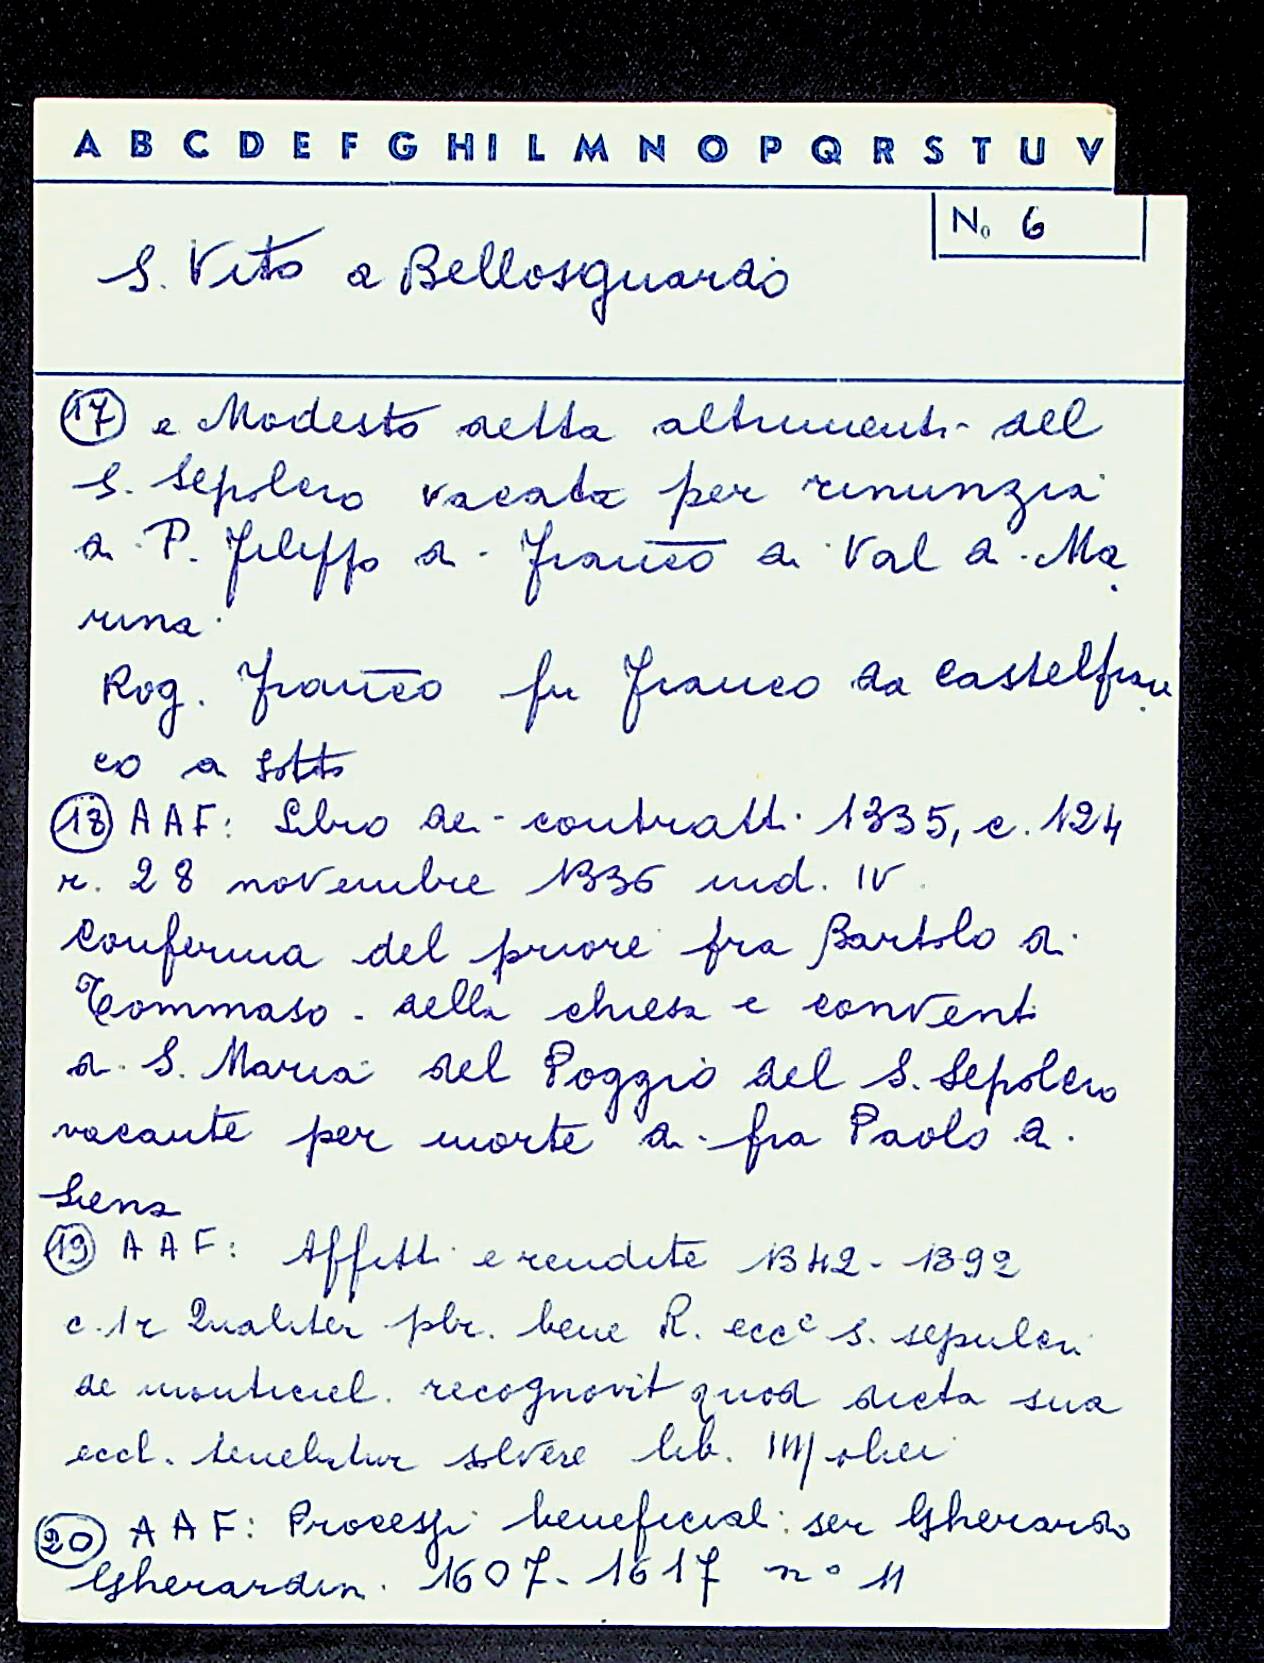 A B C D E F G H I L M N O P Q R S T U V
No 6
S. Vito a Bellosguardo
17 e Modesto detta altrimenti del
S. Sepolcro vacata per rinunzia
di P. Filippo di Franco di Val di Ma
rina.
Rog. Franco fu Franco da Castelfran
co di sotto
18 AAF: Libro dei contratti 1335, c. 124
r. 28 novembre 1336 ind. IV.
Conferma del priore fra Bartolo di
Tommaso della chiesa e conventi
di S. Maria del Poggio del S. Sepolcro
vacante per morte di fra Paolo di
Siena
19 AAF: Affitti e rendite 1342-1392
c. 1r Qualiter pbr. bene R. ecce S. Sepulcri
de monticiel. recognovit quod dicta sua
eccl. tenebatur solvere lib. IIII olei
20 AAF: Processi beneficiali ser Gherardo
Gherardini. 1607-1617 n° 11